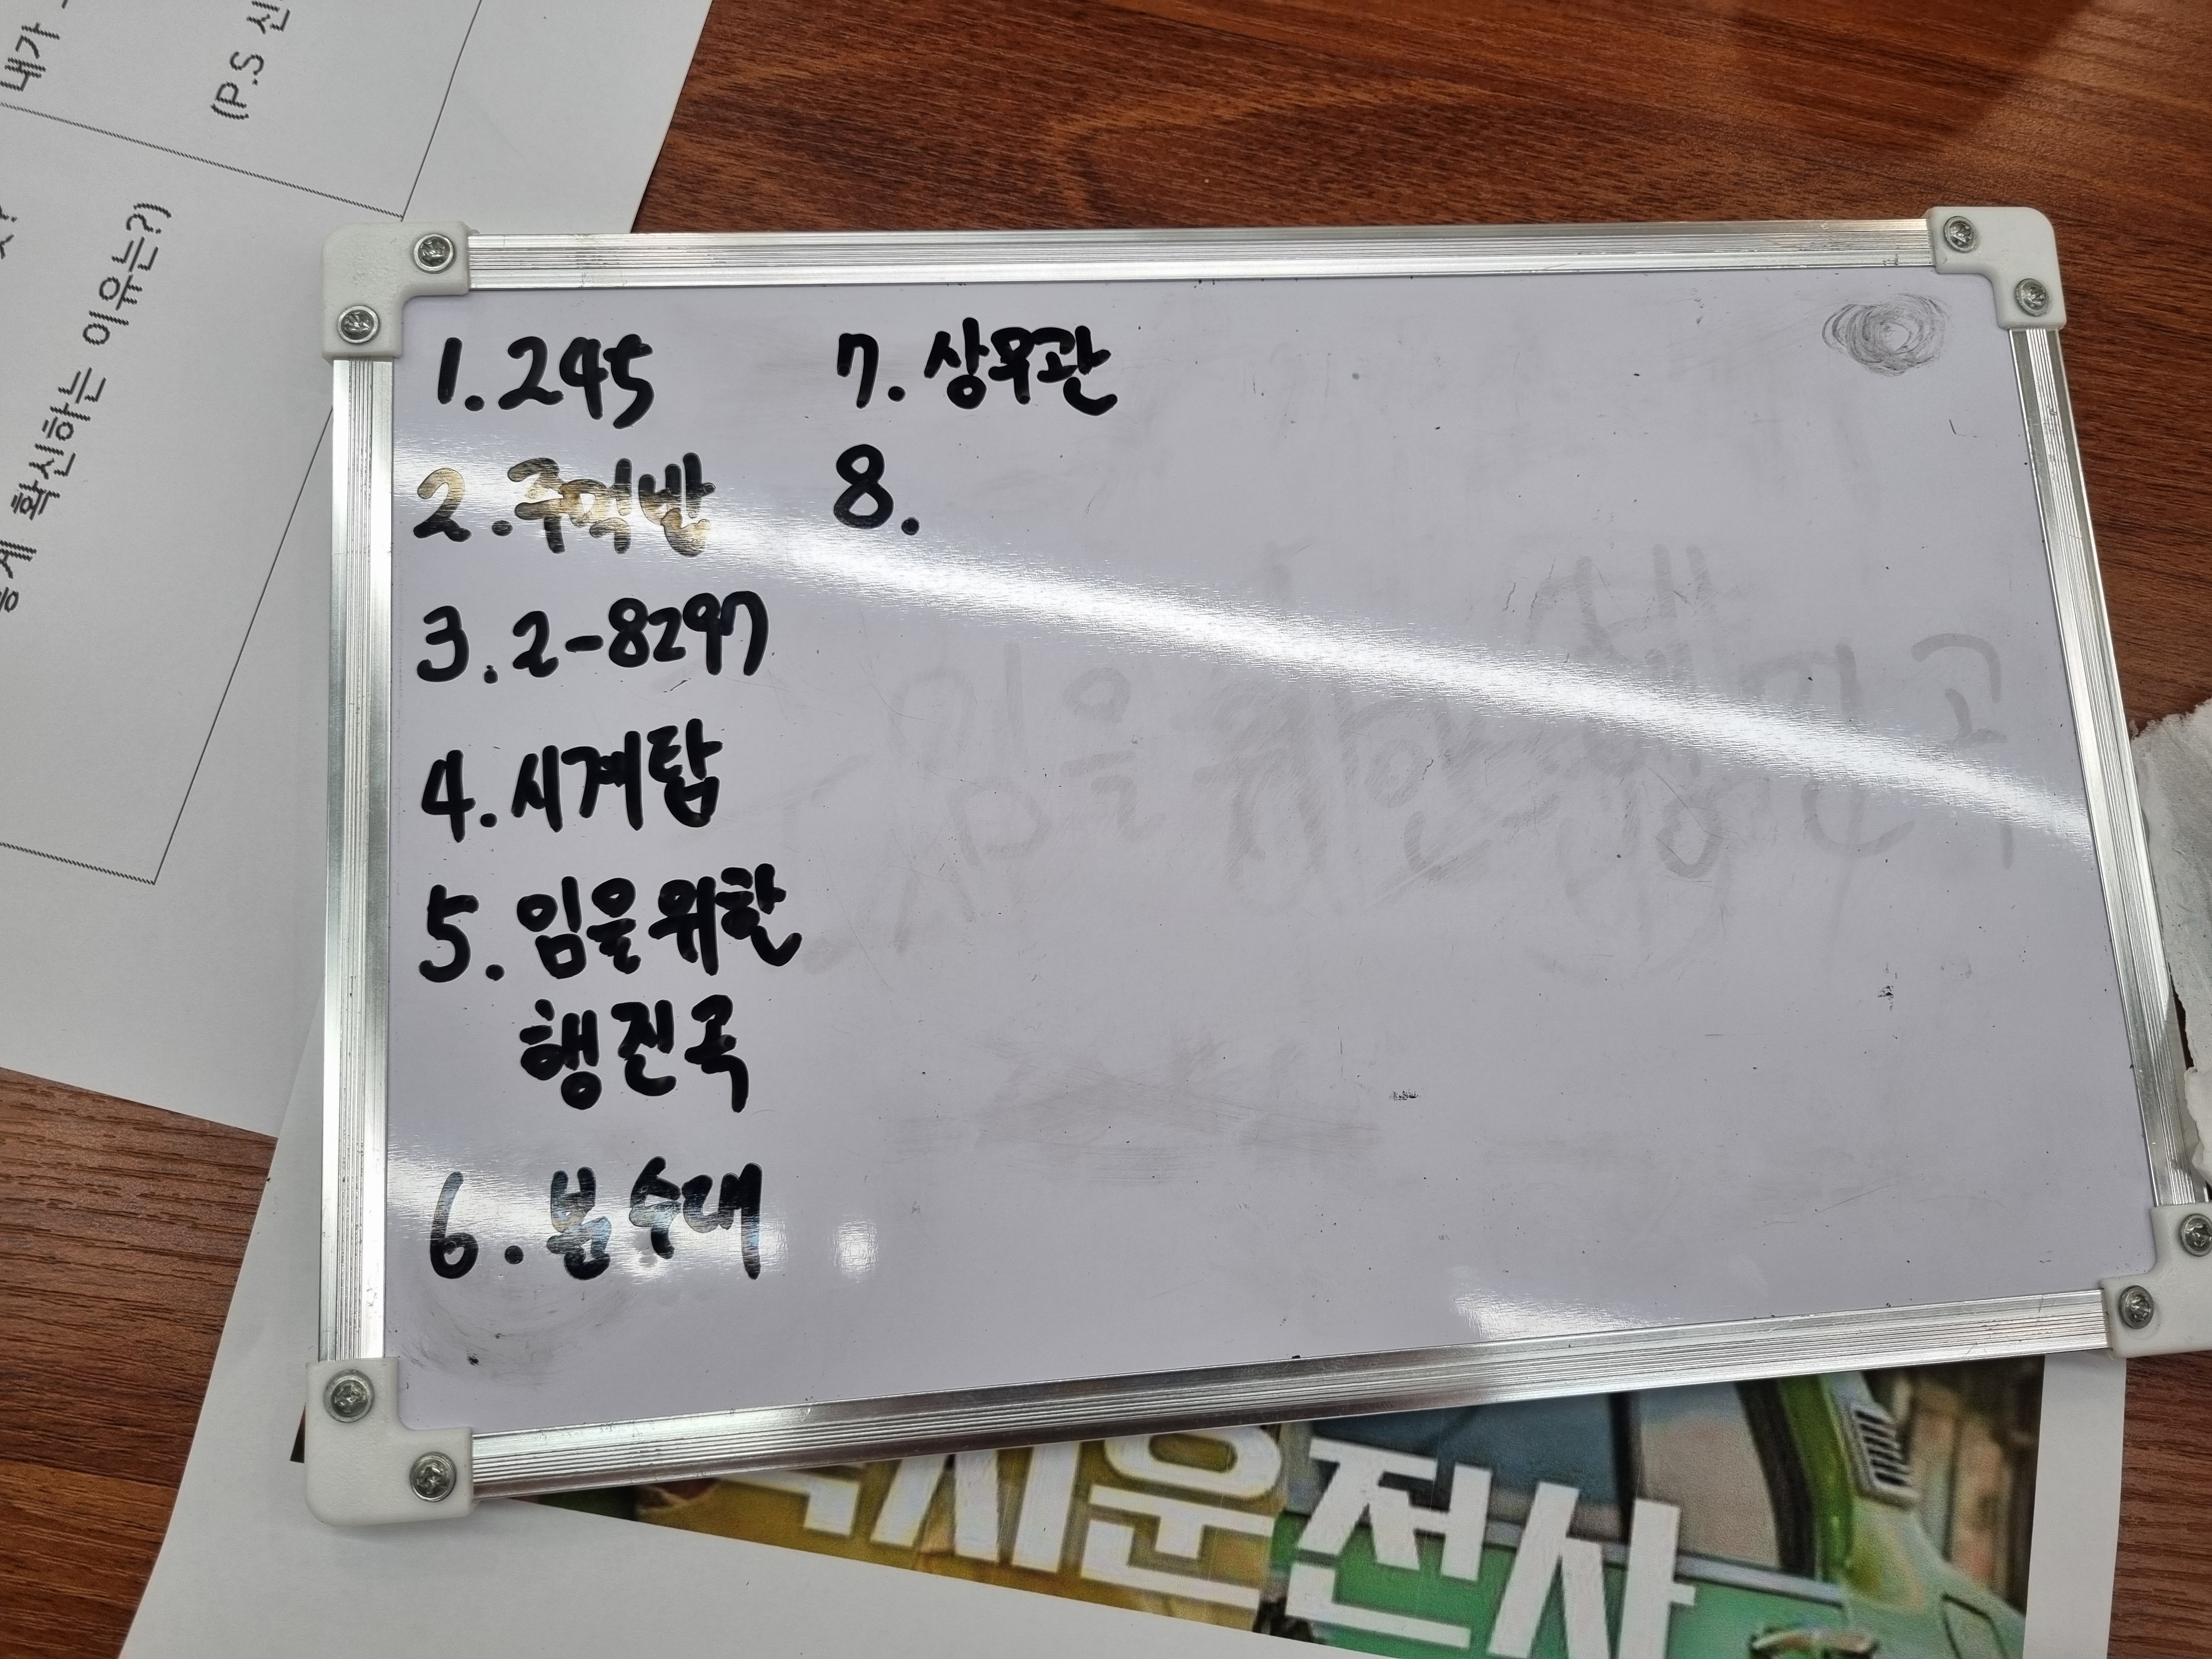 내가
(P.S 신
확신하는 이유는?)
1. 245
2. 주먹밥
3. 2-8297
4. 시계탑
5. 임을위한
행진곡
6. 분수대
7. 상무관
8.
시운전사